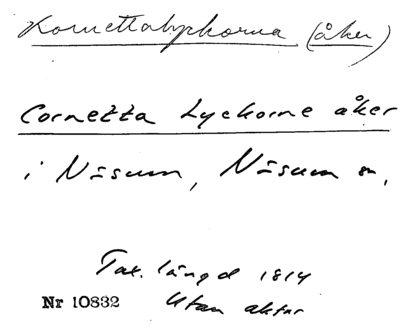 Kornettalyckorna (åker)
Cornetta Lyckorne åker
i Näsum, Näsum sn.
Tax. längd 1814
Nr 10832 Utan aktnr